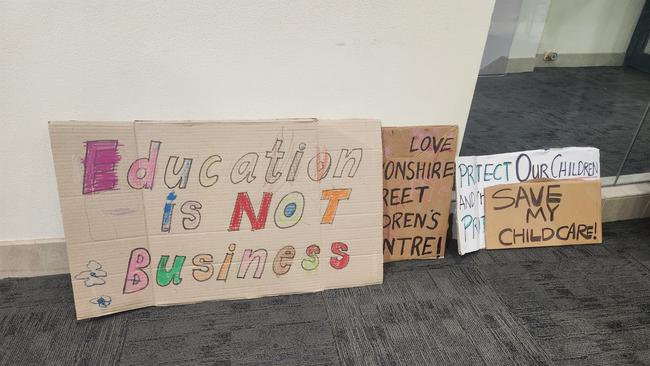 Education
is NOT
Business
LOVE
ONSHIRE
REET
DREN'S
NTRE!
PROTECT OUR CHILDREN
AND
SAVE
MY
CHILDCARE!